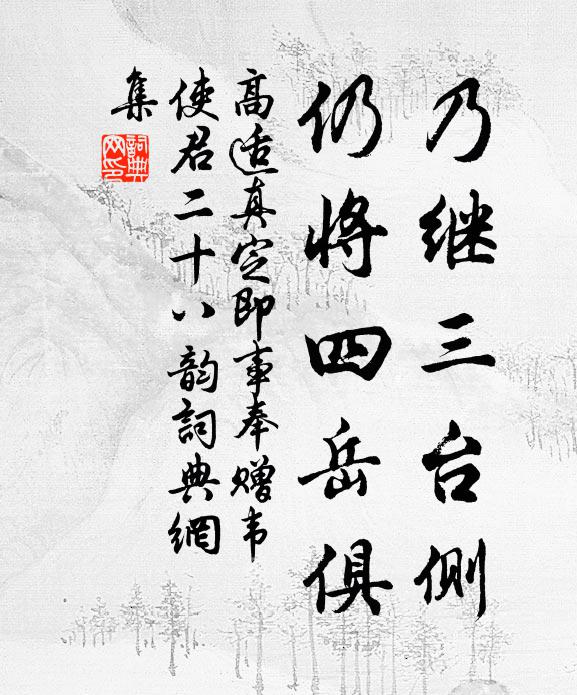 乃继三台侧
仍将四岳俱
高适真定即事奉赠韦
使君二十八韵詞典網
集
詞典
网印